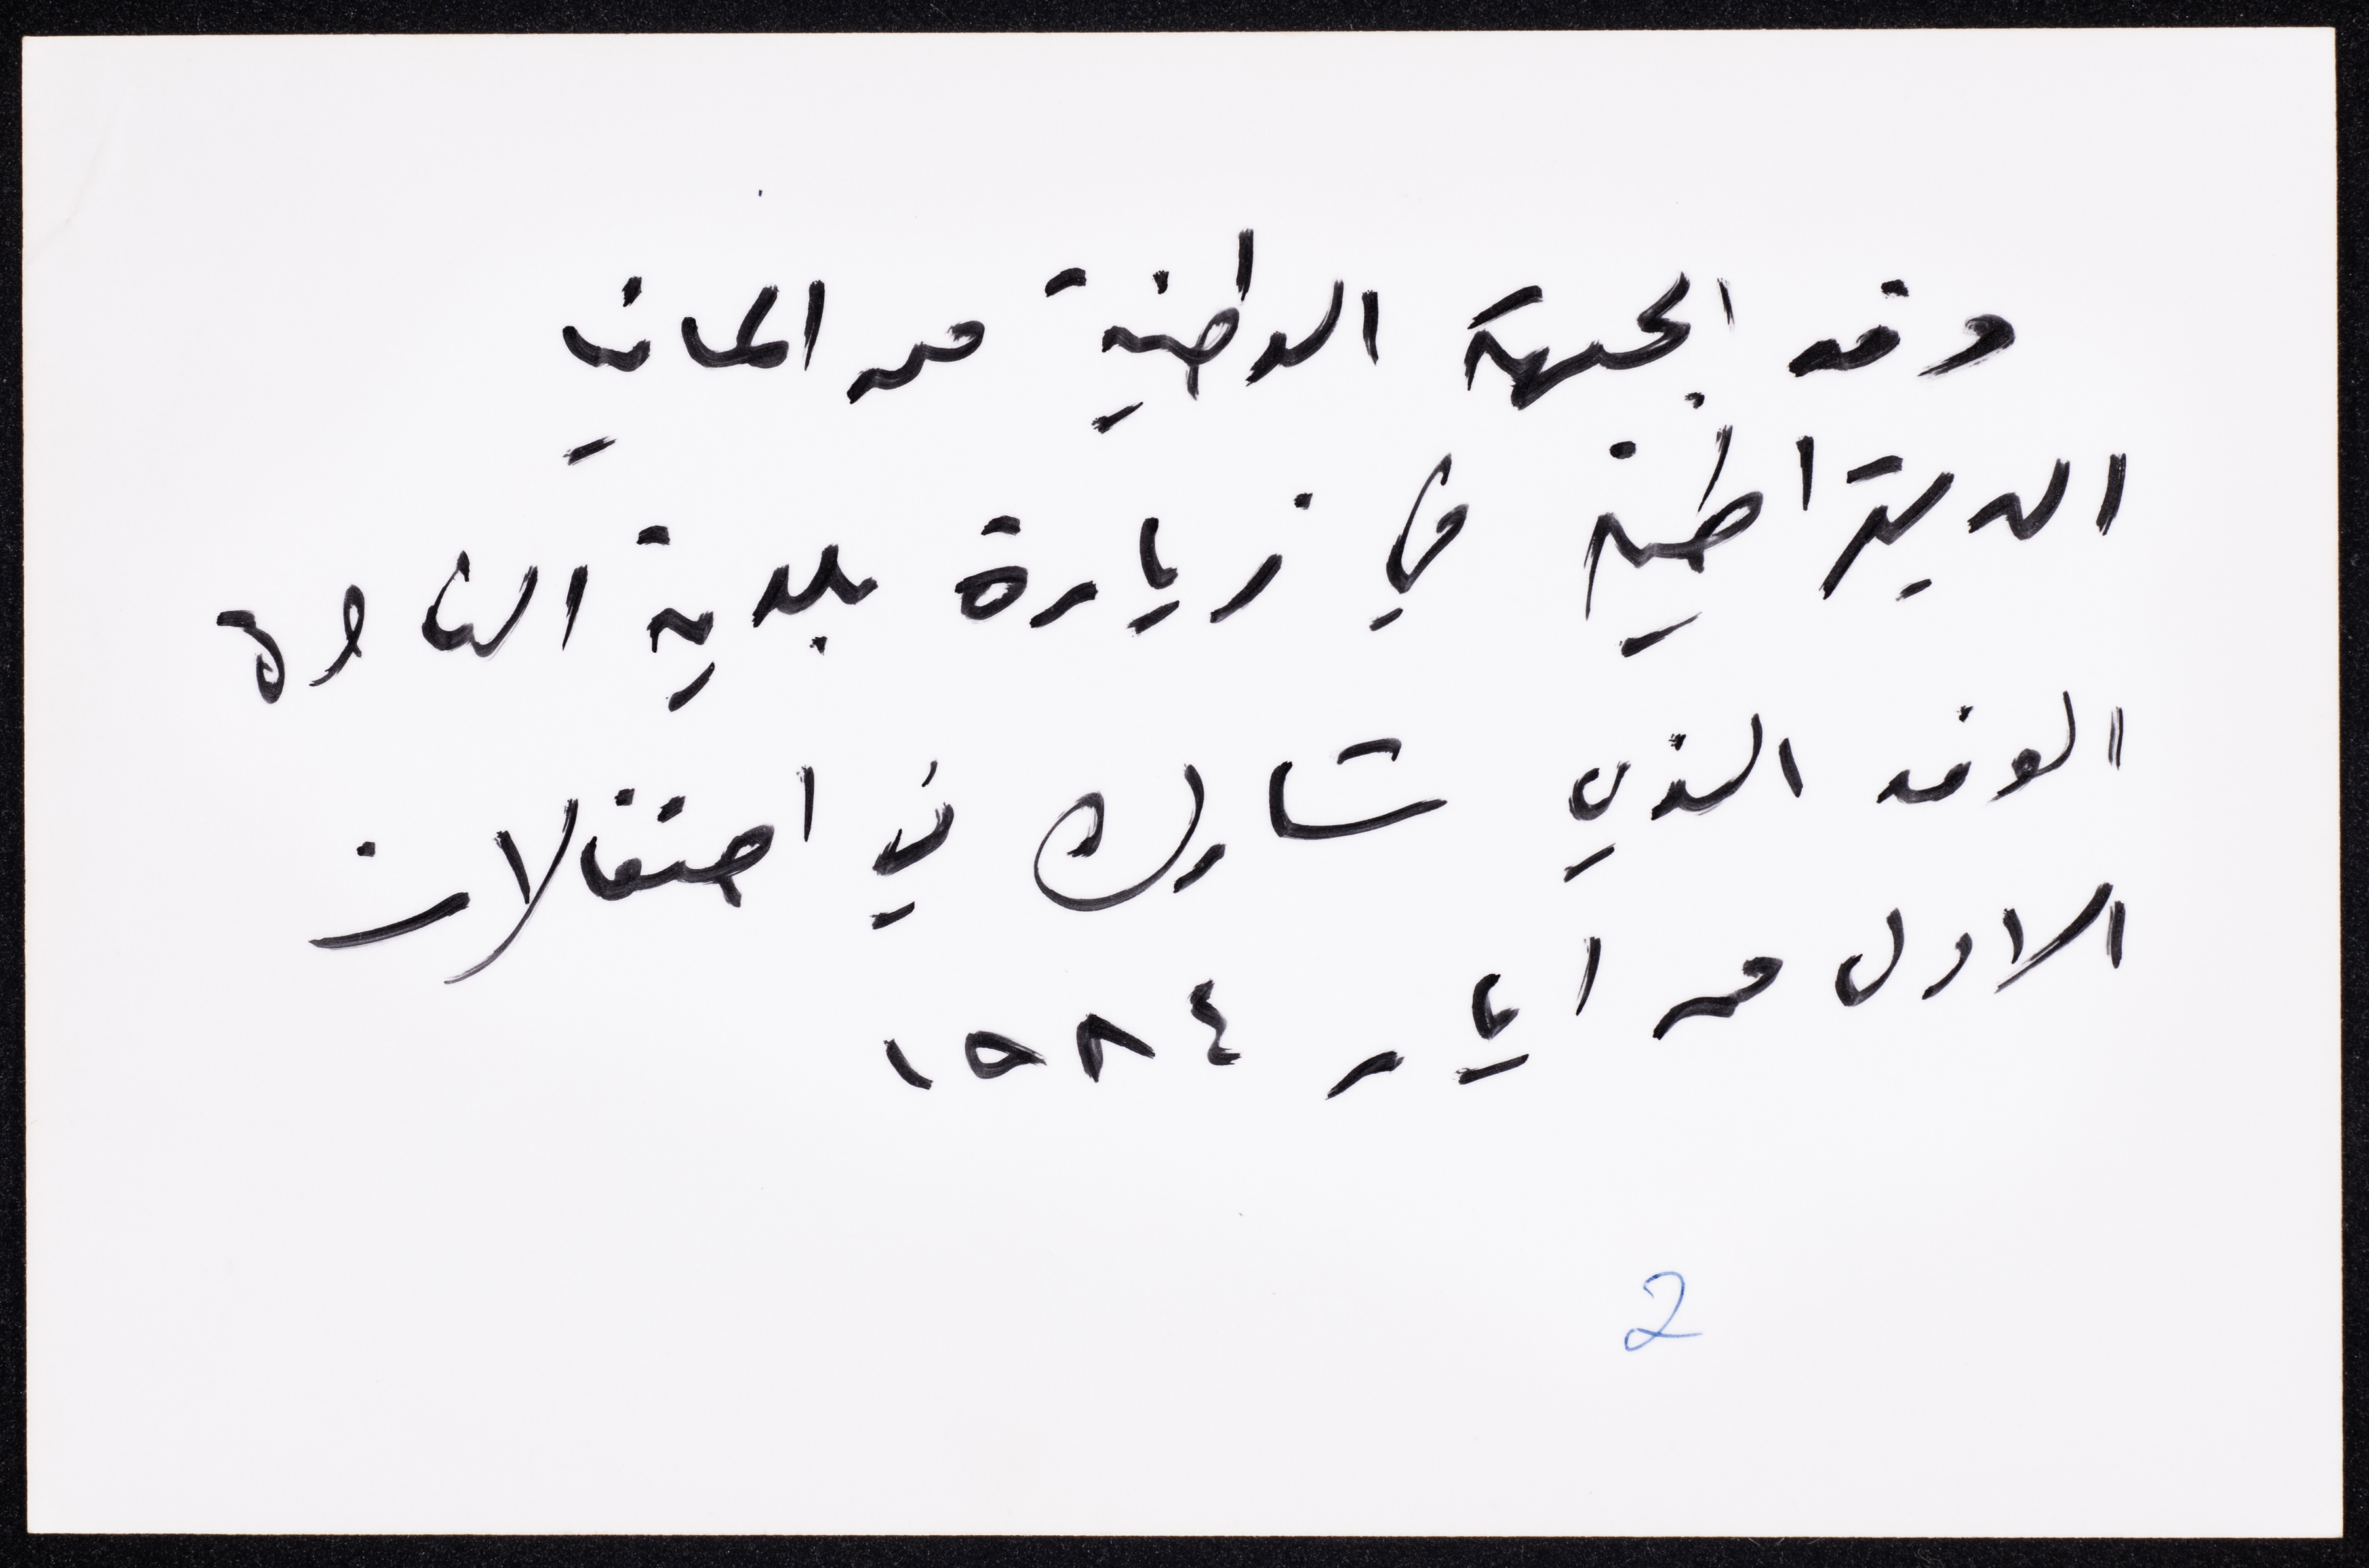 وفد الجبهة الوطنية من المانيا
الديمقراطية في زيارة بلدية الناصرة
الوفد الذي شارك في احتفالات
الاول من ايار ١٩٨٤
2